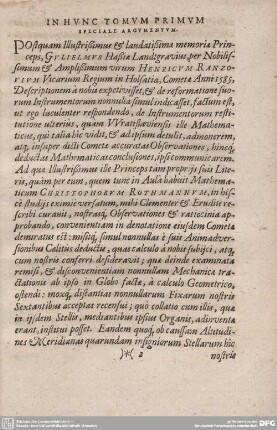 IN HVNC TOMVM PRIMVM
SPECIALE ARGVMENTVM.
POstquam Illustrissimus & laudatissima memoria Prin-
ceps, GVLIELMVS Hassiæ Landgravius, per Nobilis-
simum & Amplissimum virum HENRICVM RANZO-
VIVM Vicarium Regium in Holsatia, Cometæ Anni 1585,
Descriptionem à nobis expetivisset, & de reformatione suo-
rum Instrumentorum nonnulla simul indicasset, factum est,
ut ego luculenter respondendo, de Instrumentorum resti-
tutione alterius, quam VVratislaviensis ille Mathema-
ticus, qui talia hic vidit, & ad ipsum detulit, admonerem,
atq; insuper dicti Cometæ accuratas Observationes, hincq;
deductas Mathematicas conclusiones, ipsi communicarem.
Ad qua Illustrissimus ille Princeps tam proprijs suis Lite-
ris, quàm per eum, quem tunc in Aula habuit Mathema-
ticum CHRISTOPHORVM ROTHMANNVM, in his-
ce studijs eximiè versatum, mihi Clementer & Eruditè re-
scribi curavit, nostrasq; Observationes & ratiocinia ap-
probando, convenientiam in denotatione eiusdem Cometæ
demiratus est: misitq; simul nonnullas è suis Animadver-
sionibus Cælitus deductis, quas calculo à nobis subijci, atq;
cum nostris conferri desideravit; quæ deinde examinata
remisi, & disconvenientiam nonnullam Mechanicæ tra-
ctationis ab ipso in Globo factæ, à calculo Geometrico,
ostendi: moxq; distantias nonnullarum Fixarum nostris
Sextantibus acceptas recensui; quò collatio cum illis, quæ
in ijsdem Stellis, mediantibus ipsius Organis, adinventæ
erant, institui posset. Eandem quoq; ob caussam Altitudi-
nes Meridianas quarundam insigniorum Stellarum hîc
2 nostris